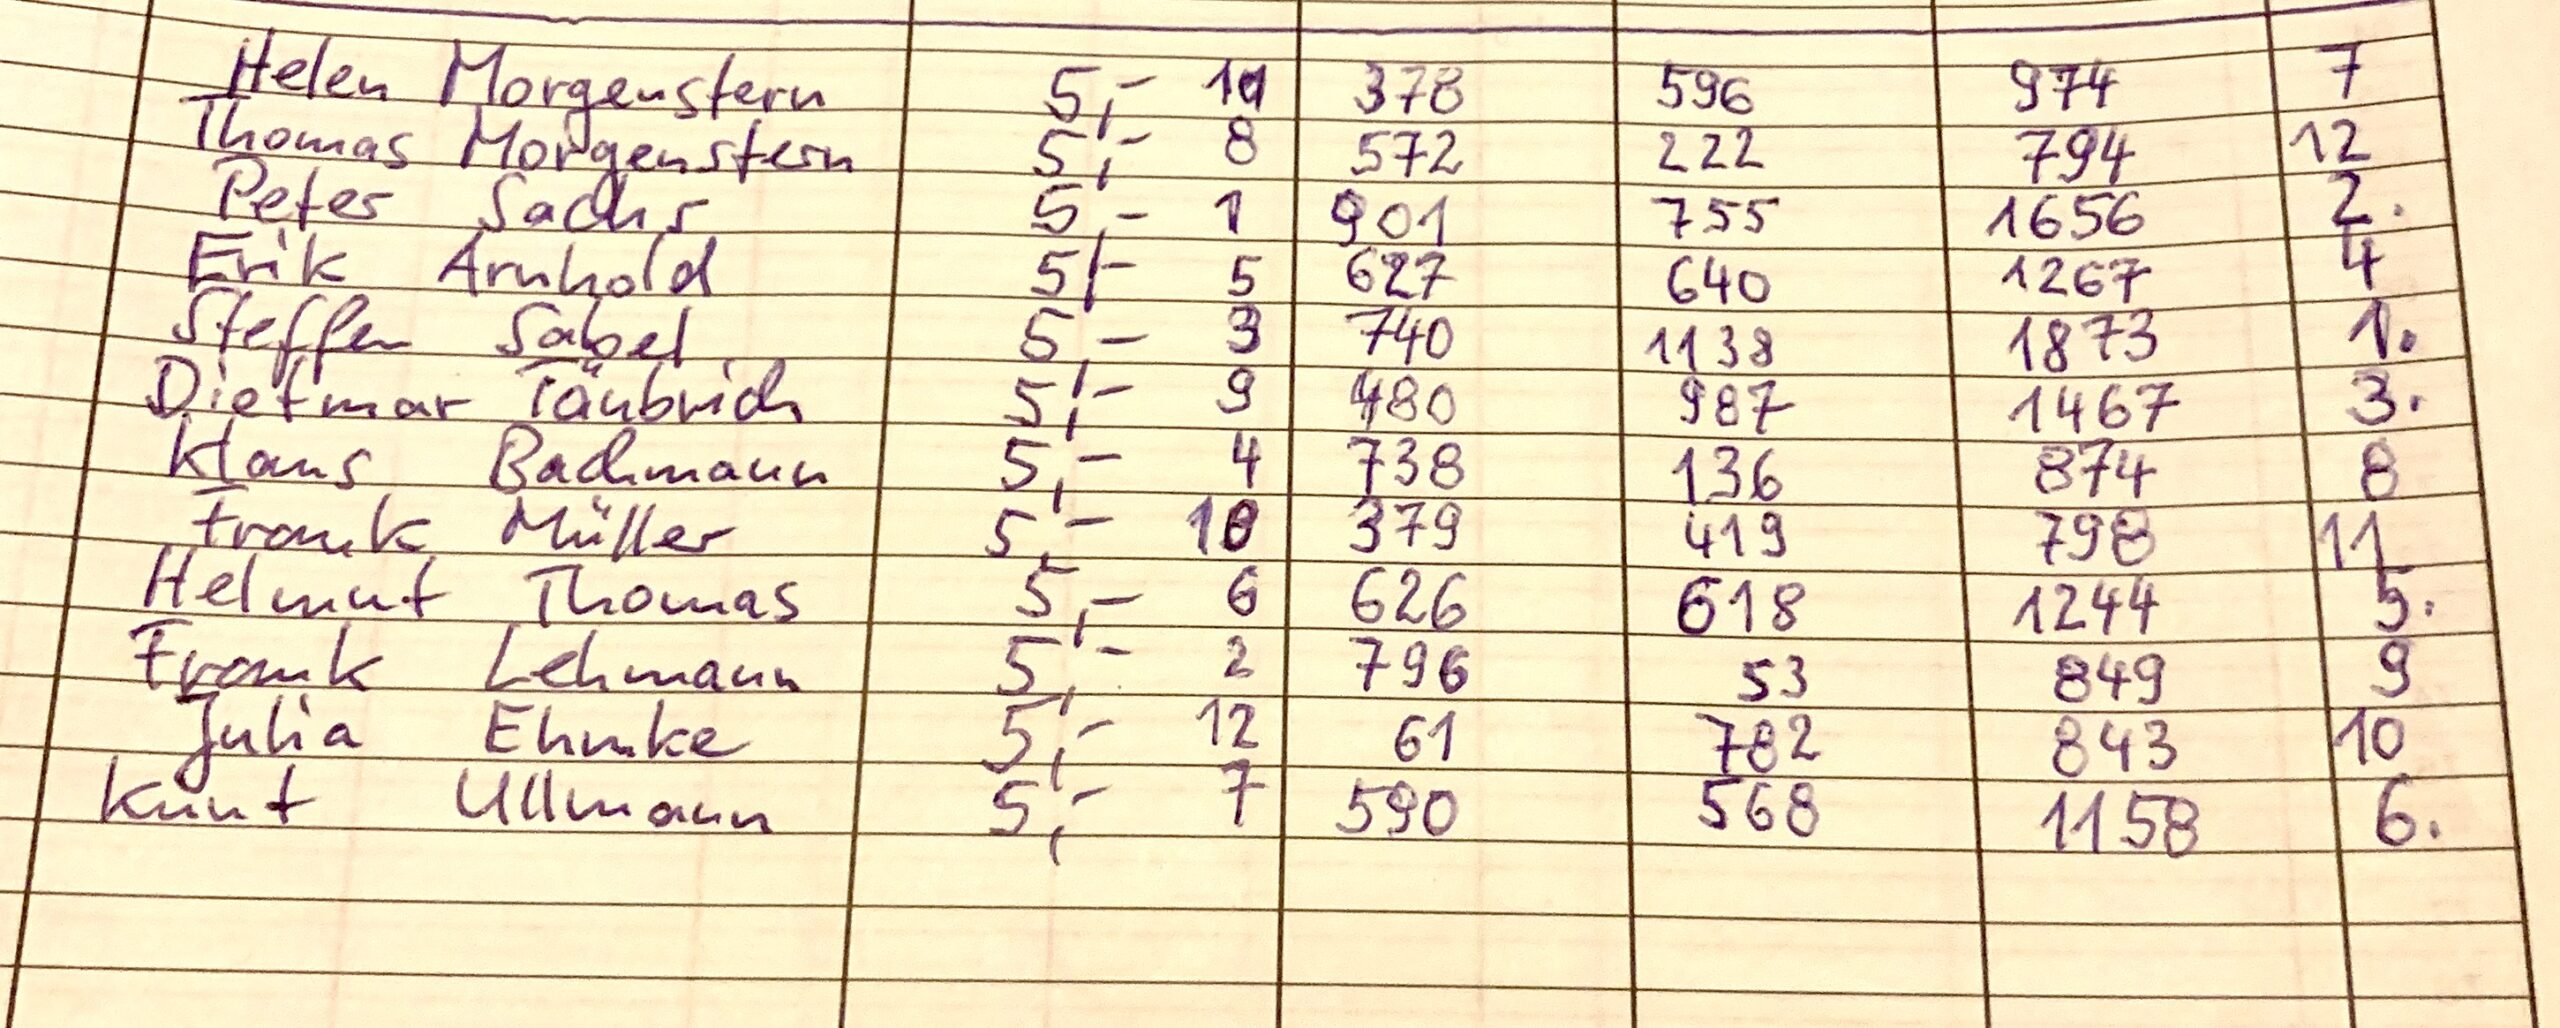 Helen Morgenstern 5,- 11 378 596 974 7
Thomas Morgenstern 5,- 8 572 222 794 12
Peter Sachs 5,- 1 901 755 1656 2.
Erik Arnhold 5,- 5 627 640 1267 4
Steffen Sabel 5,- 3 740 1138 1873 1.
Dietmar Täubrich 5,- 9 480 987 1467 3.
Klaus Bachmann 5,- 4 738 136 874 8
Frank Müller 5,- 10 379 419 798 11
Helmut Thomas 5,- 6 626 618 1244 5.
Frank Lehmann 5,- 2 796 53 849 9
Julia Ehmke 5,- 12 61 782 843 10
Knut Ullmann 5,- 7 590 568 1158 6.